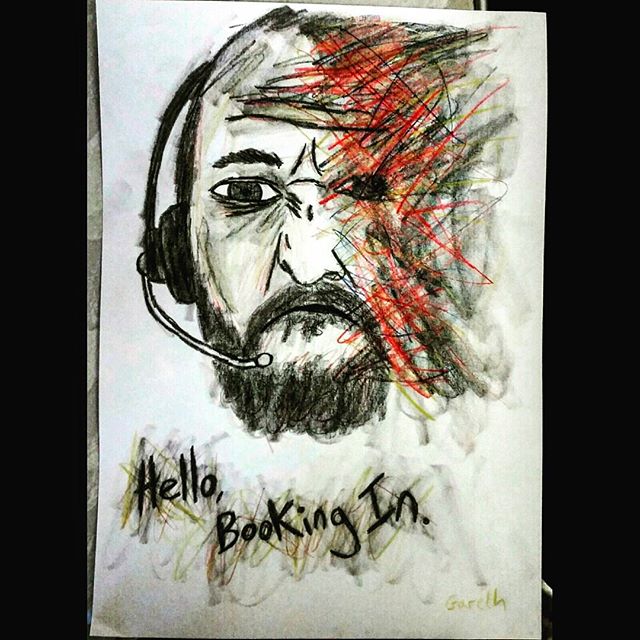 Hello,
Booking In.
Gareth